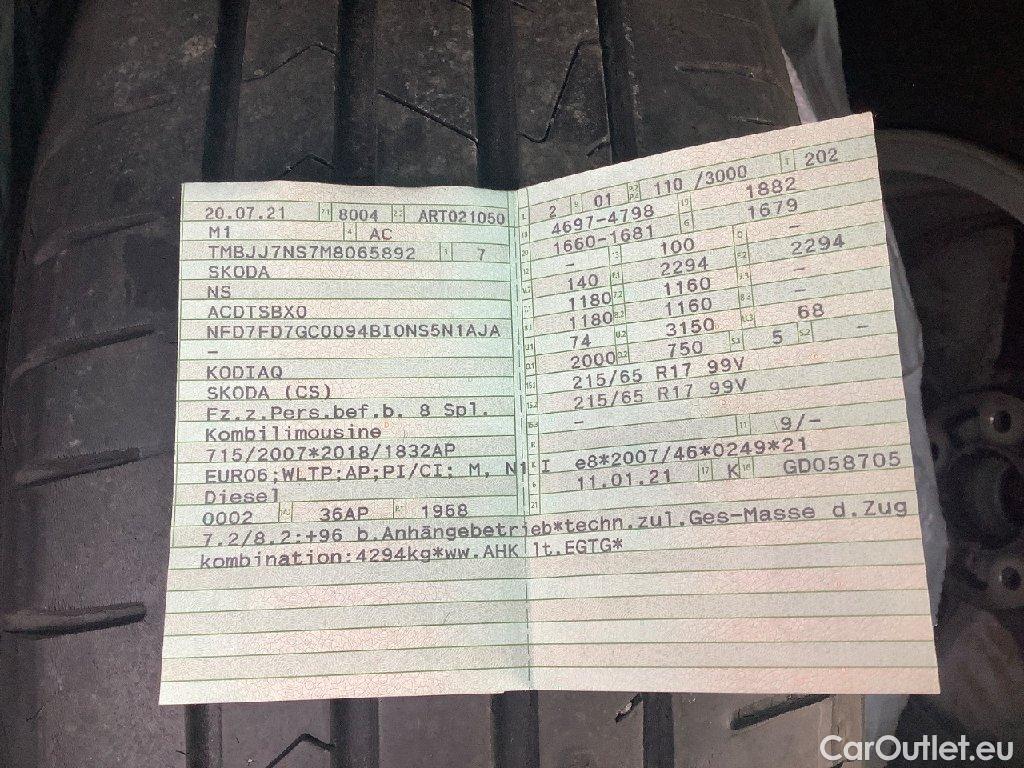 20.07.21 2.1 8004 2.2 ART021050
M1 4 AC
TMBJJ7NS7M8065892 3 7
SKODA
NS
ACDTSBX0
NFD7FD7GC0094BI0NS5N1AJA
–
KODIAQ
SKODA (CS)
Fz.z.Pers.bef.b. 8 Spl.
Kombilimousine
715/2007*2018/1832AP
EURO6;WLTP;AP;PI/CI; M, N1 I
Diesel
0002 36AP 1968
2 9 01 110 /3000 T 202
4697-4798 1882
1660-1681 1679
– 100 –
140 2294 2294
1180 1160 –
1180 1160 –
74 3150 68
2000 750 5 –
215/65 R17 99V
215/65 R17 99V
– 11 9/–
K e8*2007/46*0249*21
6 11.01.21 17 K 16 GD058705
21
7.2/8.2:+96 b.Anhängebetrieb*techn.zul.Ges-Masse d.Zug
kombination:4294kg*ww.AHK lt.EGTG*
CarOutlet.eu